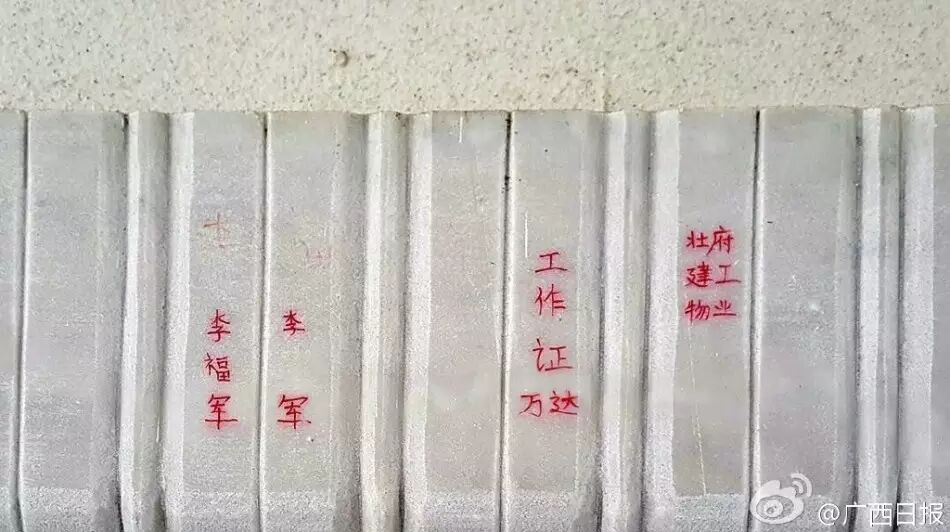 李福军
李
军
工作证
万达
壮府
建工
物业
@广西日报